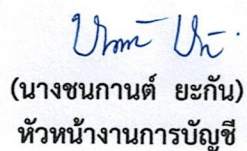 (นางชนกานต์ ยะกัน)
หัวหน้างานการบัญชี